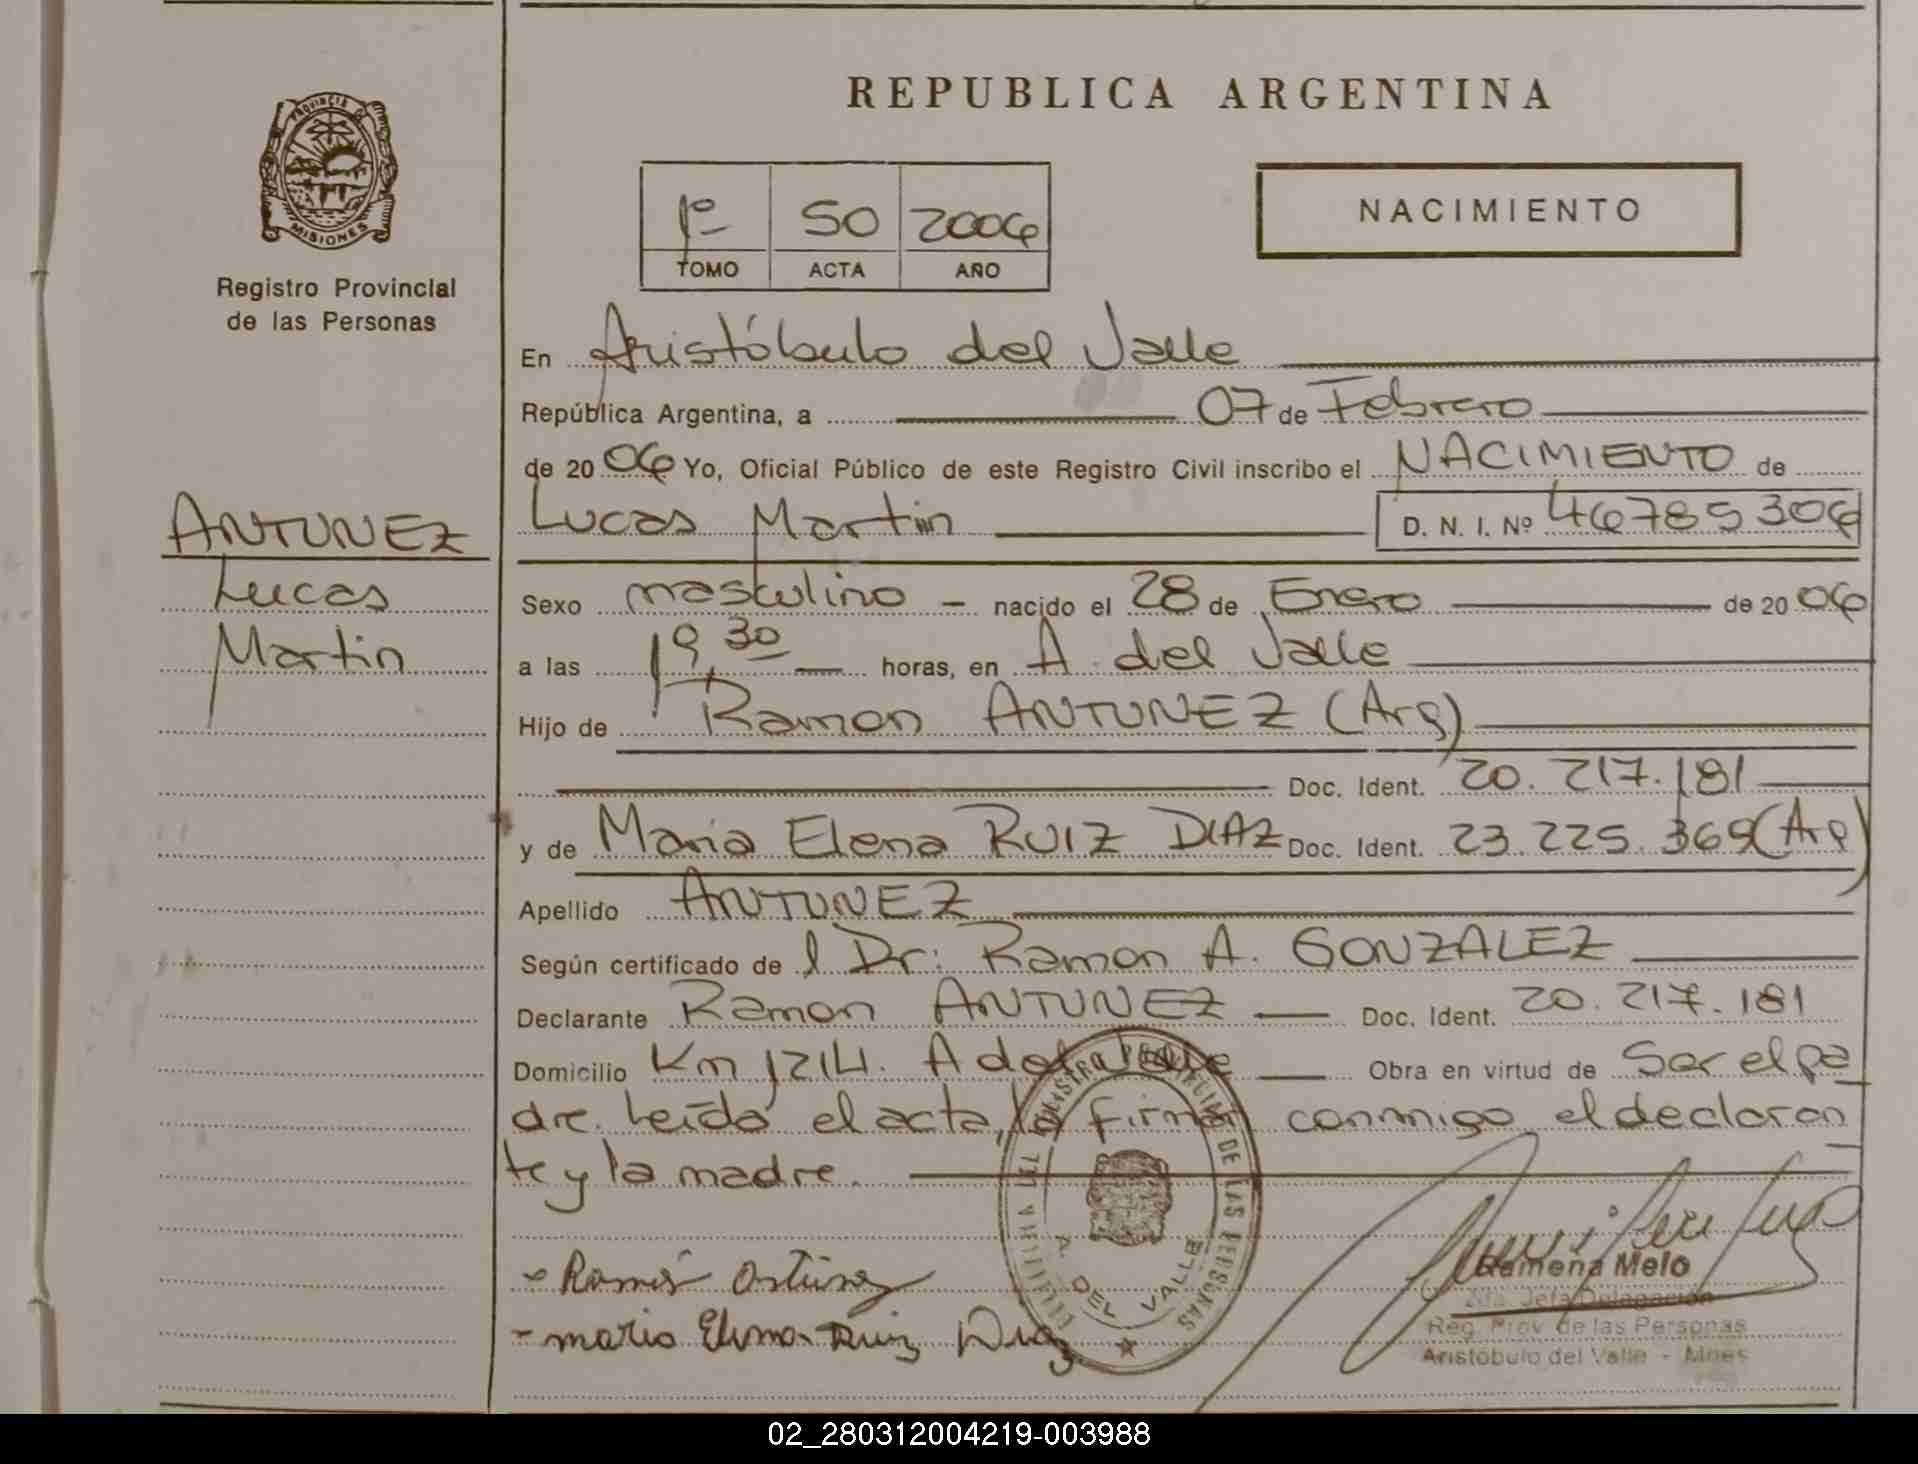 REPUBLICA ARGENTINA
PROVINCIA DE MISIONES
Registro Provincial
de las Personas
1º 50 2006
TOMO ACTA AÑO
NACIMIENTO
En Aristóbulo del Valle
República Argentina, a 07 de Febrero
de 2006 Yo, Oficial Público de este Registro Civil inscribo el NACIMIENTO de
ANTUNEZ
Lucas
Martin
Lucas Martin D. N. I. Nº 46785306
Sexo masculino - nacido el 28 de Enero de 2006
a las 19,30 horas, en A. del Valle
Hijo de Ramon ANTUNEZ (Arg)
Doc. Ident. 20.217.181
y de Maria Elena RUIZ DIAZ Doc. Ident. 23.225.365 (Arg)
Apellido ANTUNEZ
Según certificado de l Dr: Ramon A. GONZALEZ
Declarante Ramon ANTUNEZ Doc. Ident. 20.217.181
Domicilio Km 1214. A del Valle Obra en virtud de Ser el pa
dre. Leida el acta, la firman conmigo el declaran
te y la madre.
- Ramón Antúnez
- maria Elena Ruiz Diaz
REGISTRO PROVINCIAL DE LAS PERSONAS
A. DEL VALLE
Melo
2da. Jefa Delegación
Reg. Prov. de las Personas
Aristóbulo del Valle - Mnes
02_280312004219-003988